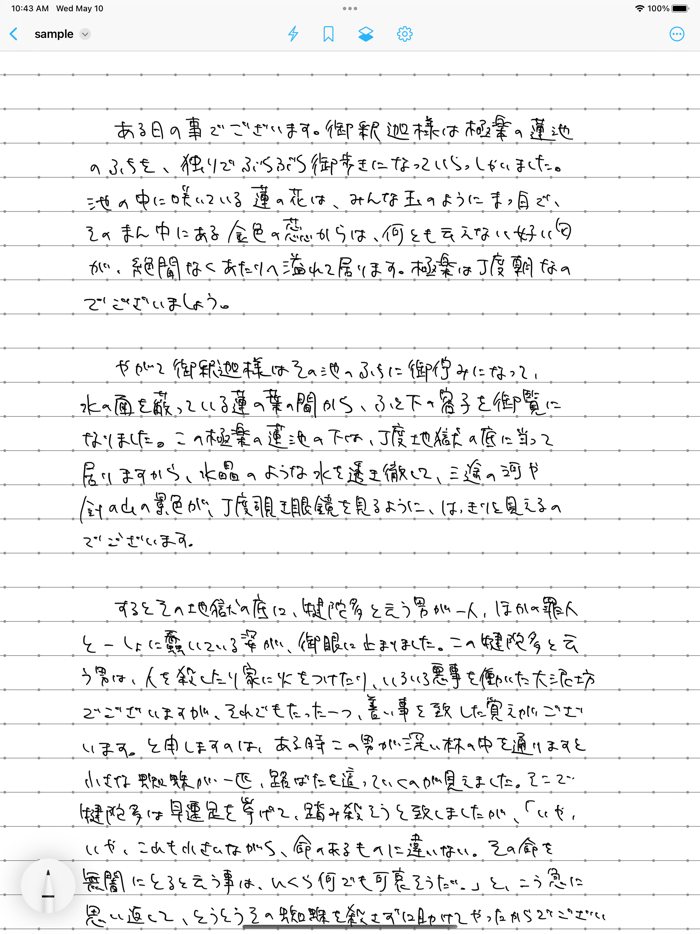 10:43 AM Wed May 10
100%
sample
ある日の事でございます。御釈迦様は極楽の蓮池
のふちを、独りでぶらぶら御歩きになっていらっしゃいました。
池の中に咲いている蓮の花は、みんな玉のようにまっ白で、
そのまん中にある金色の蕊からは、何とも云えない好い匂
が、絶間なくあたりへ溢れて居ります。極楽は丁度朝なの
でございましょう。
やがて御釈迦様はその池のふちに御佇みになって、
水の面を蔽っている蓮の葉の間から、ふと下の容子を御覧に
なりました。この極楽の蓮池の下は、丁度地獄の底に当って
居りますから、水晶のような水を透き徹して、三途の河や
針の山の景色が、丁度覗き眼鏡を見るように、はっきりと見えるの
でございます。
するとその地獄の底に、犍陀多と云う男が一人、ほかの罪人
と一しょに蠢いている姿が、御眼に止まりました。この犍陀多と云
う男は、人を殺したり家に火をつけたり、いろいろ悪事を働いた大泥坊
でございますが、それでもたった一つ、善い事を致した覚えがござ
います。と申しますのは、ある時この男が深い林の中を通りますと
小さな蜘蛛が一匹、路ばたを這っていくのが見えました。そこで
犍陀多は早速足を挙げて、踏み殺そうと致しましたが、「いや、
いや、これも小さいながら、命のあるものに違いない。その命を
無闇にとると云う事は、いくら何でも可哀そうだ。」と、こう急に
思い返して、とうとうその蜘蛛を殺さずに助けてやったからでござい